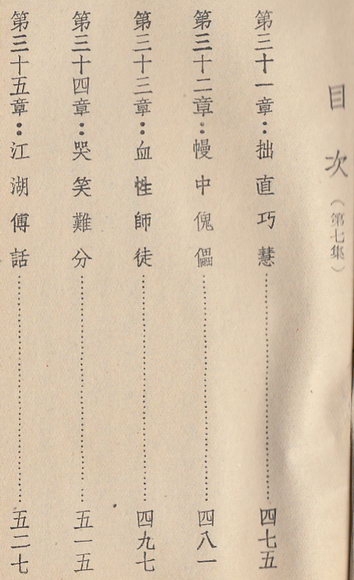 目次（第七集）
第三十一章：拙直巧慧……………四七五
第三十二章：慢中傀儡……………四八一
第三十三章：血性師徒……………四九七
第三十四章：哭笑難分……………五一五
第三十五章：江湖傳話……………五二七